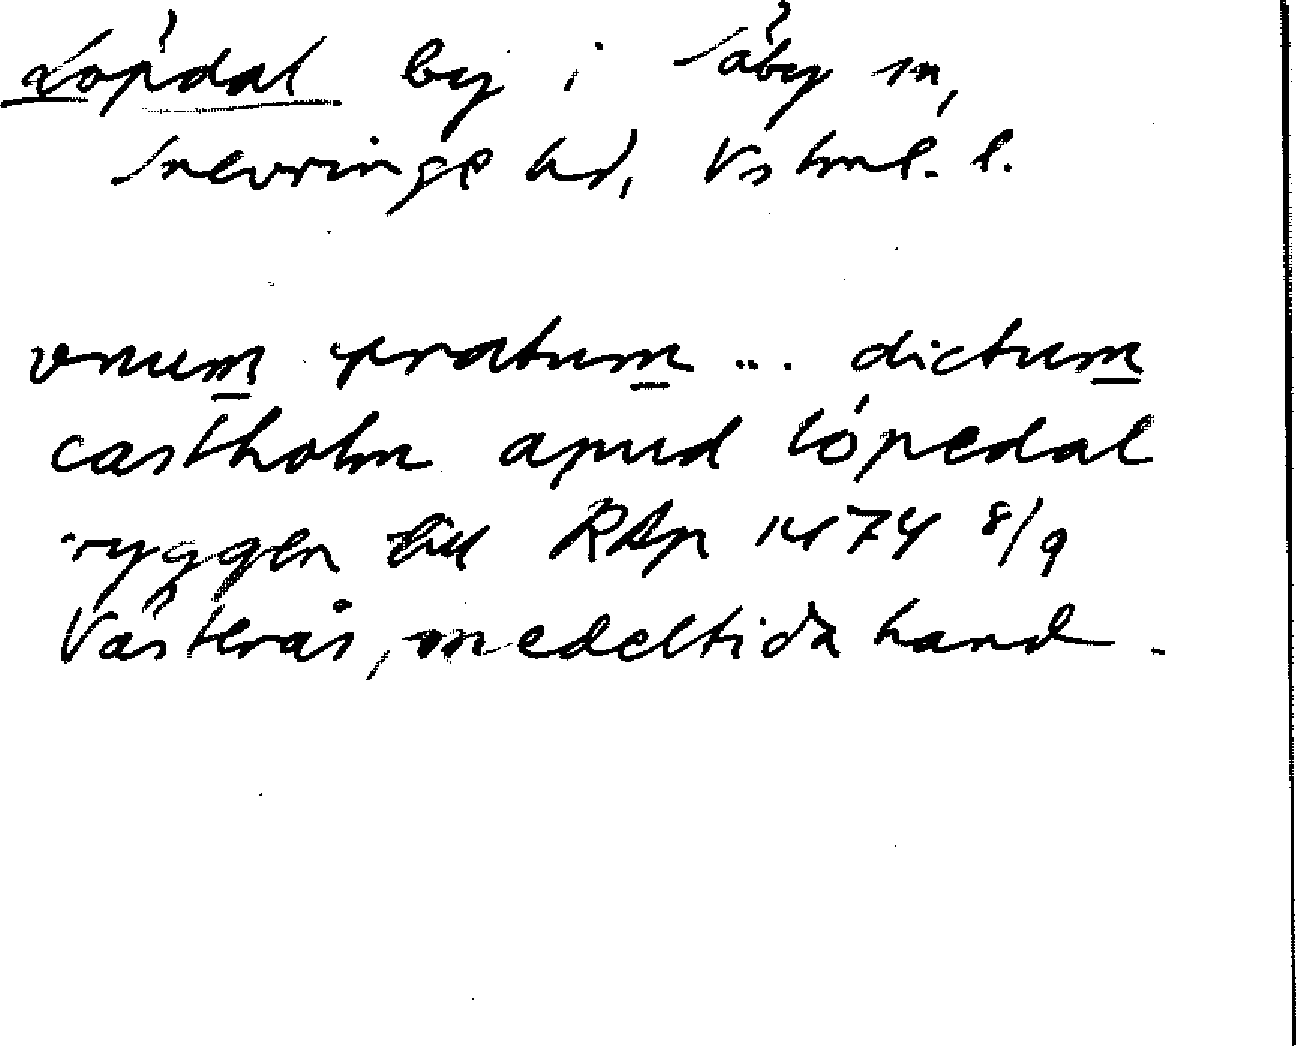 Löpdal by i Säby sn,
Snevringe hd, Vstml. l.
vnum pratum ... dictum
castholm apud lópedal
ryggen till RAp 1474 8/9
Västerås, medeltida hand.